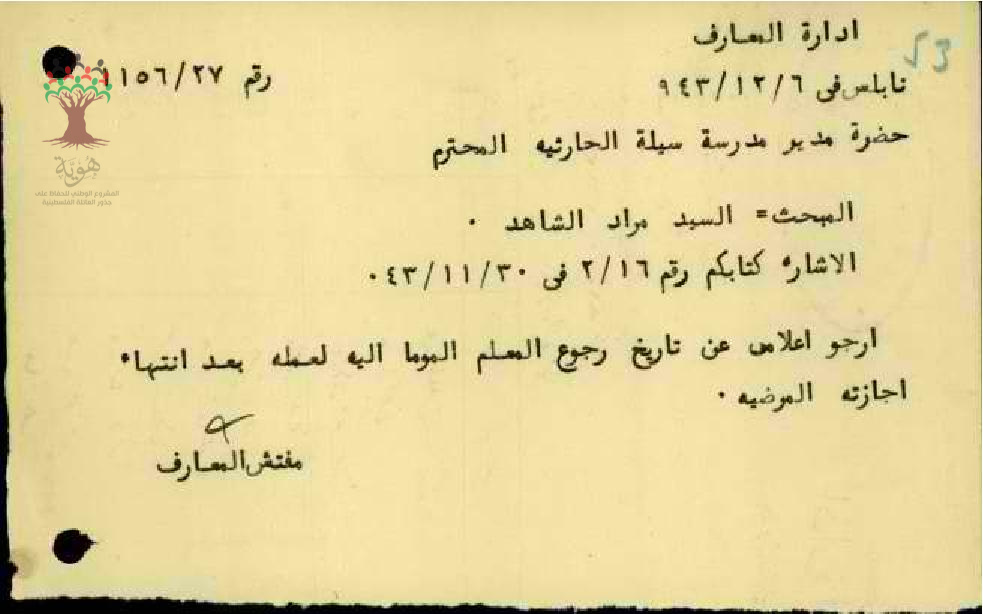 ادارة المعارف
53
نابلس في ٩٤٣/١٢/٦
رقم ١١٥٦/٢٧
حضرة مدير مدرسة سيلة الحارثيه المحترم
المبحث= السيد مراد الشاهد .
الاشاره كتابكم رقم ٢/١٦ في ٠٤٣/١١/٣٠
ارجو اعلامي عن تاريخ رجوع المعلم الموما اليه لعمله بعد انتهاء
اجازته المرضيه .
مفتش المعارف
هُويَّة
المشروع الوطني للحفاظ على
جذور العائلة الفلسطينية